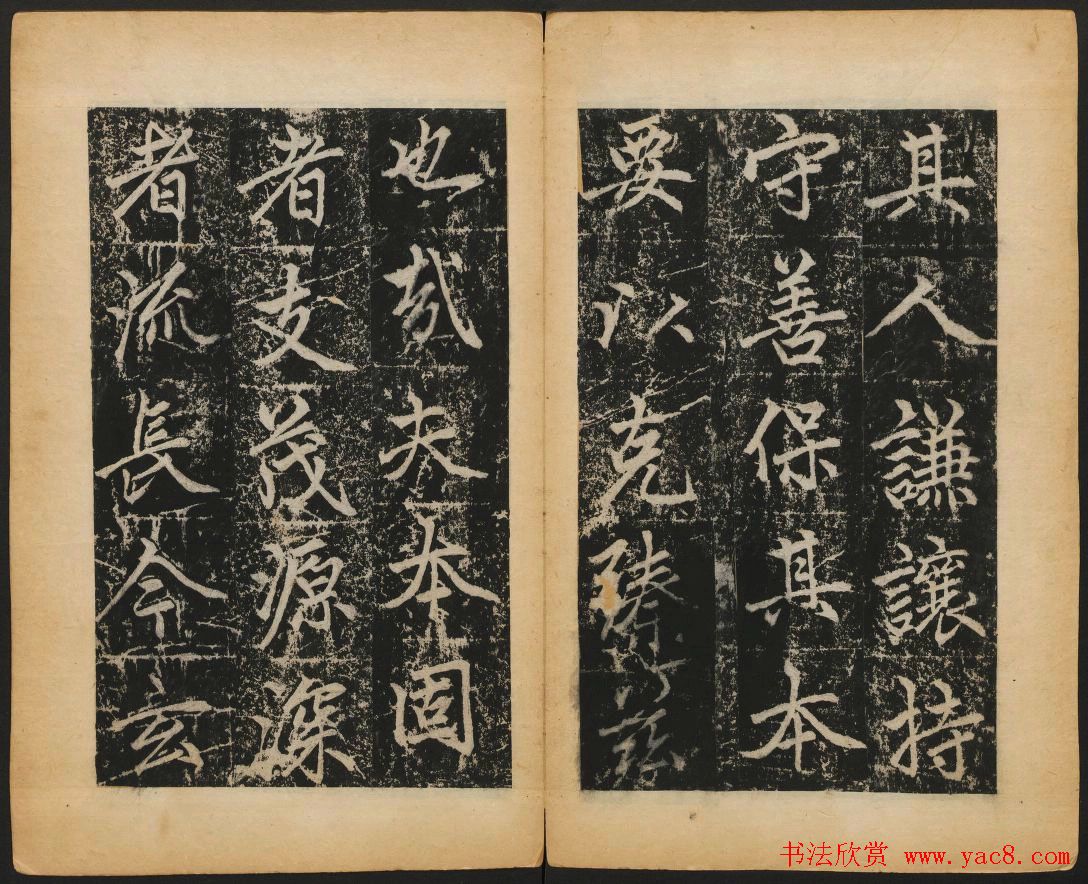 其人謙讓持
守善保其本
要以克臻茲
也哉夫本固
者支茂源深
者流長今玄
书法欣赏 www.yac8.com